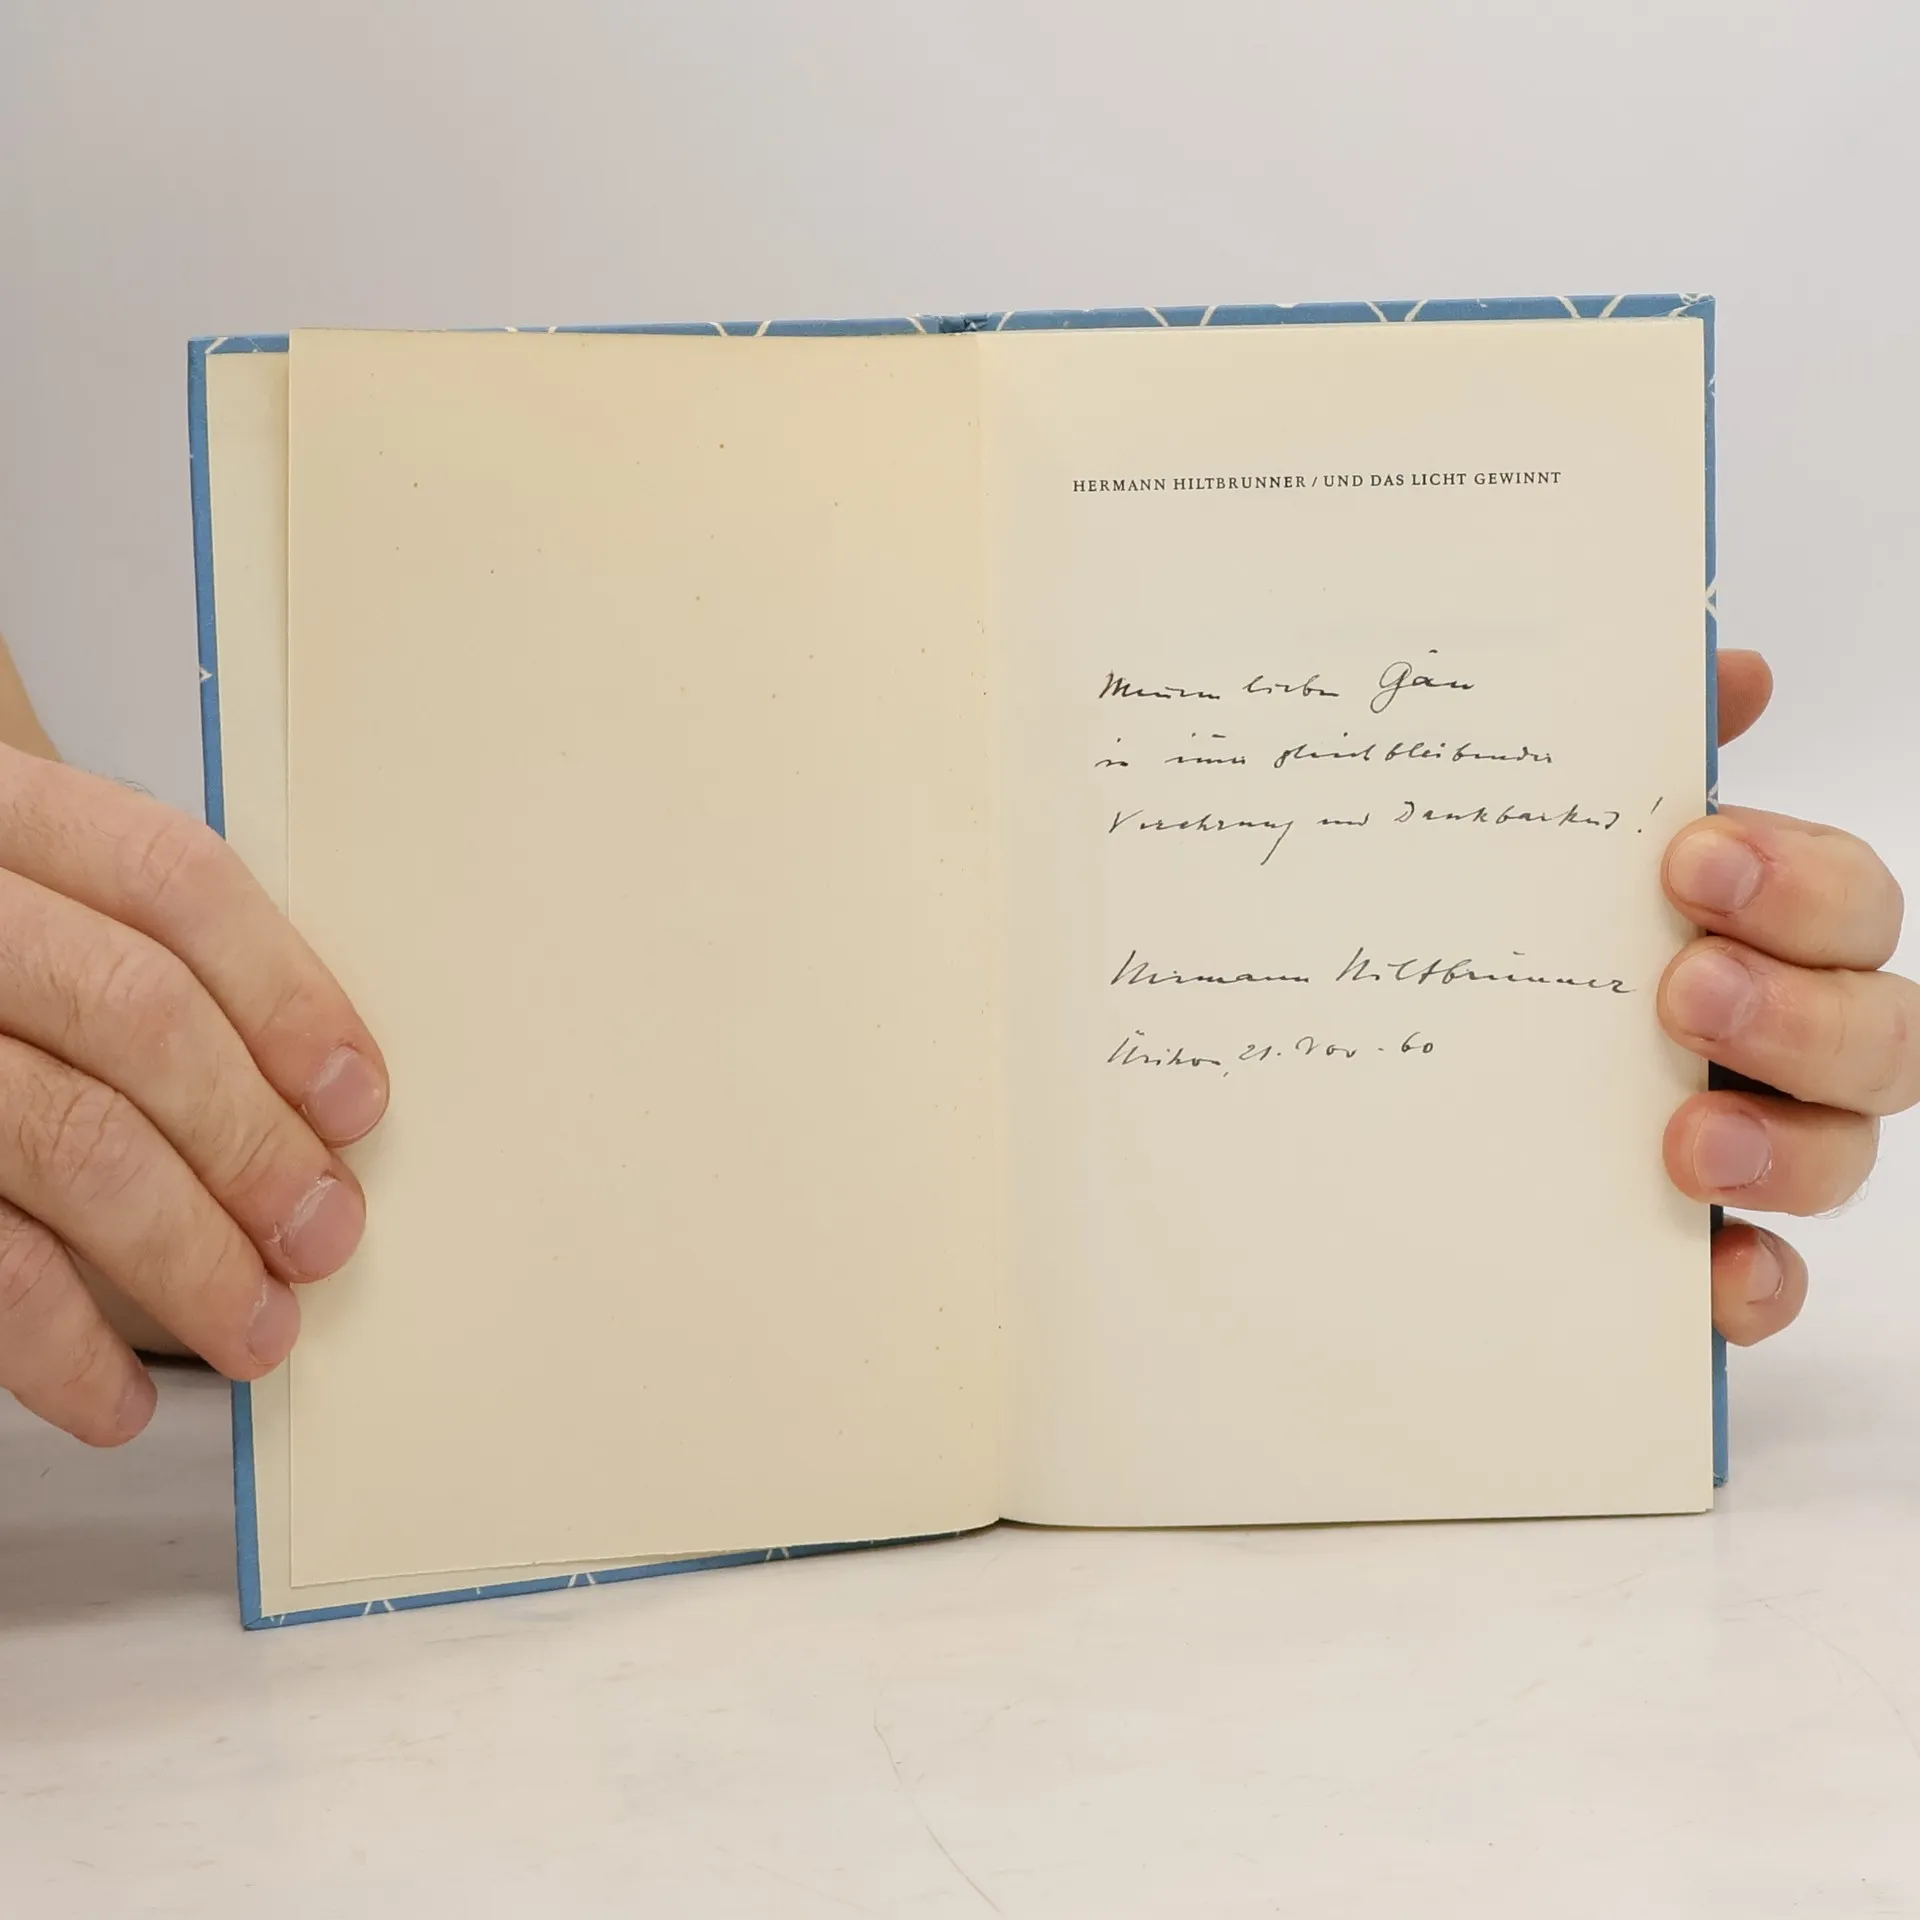 HERMANN HILTBRUNNER / UND DAS LICHT GEWINNT
Meinem lieben
in immer gleichbleibender
Verehrung und Dankbarkeit!
Hermann Hiltbrunner
Ürikon, 21. Nov. 60